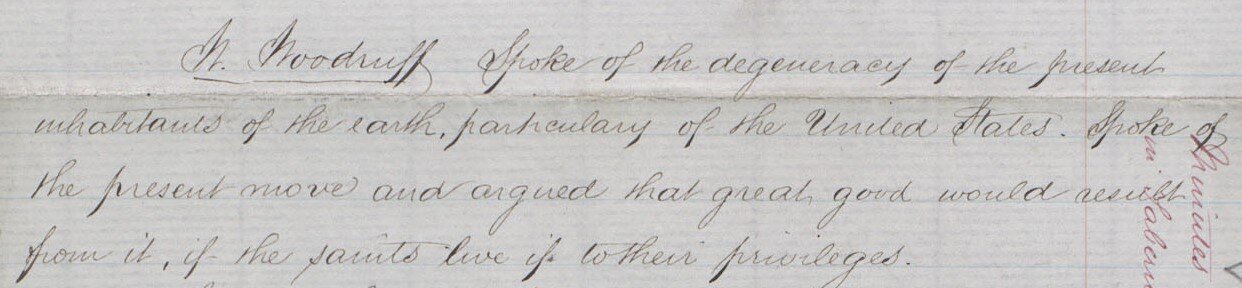 W. Woodruff Spoke of the degeneracy of the present
inhabitants of the earth, particulary of the United States. Spoke of
the present move and argued that great good would result
from it, if the saints live up to their privileges.
Minutes
in Tabern